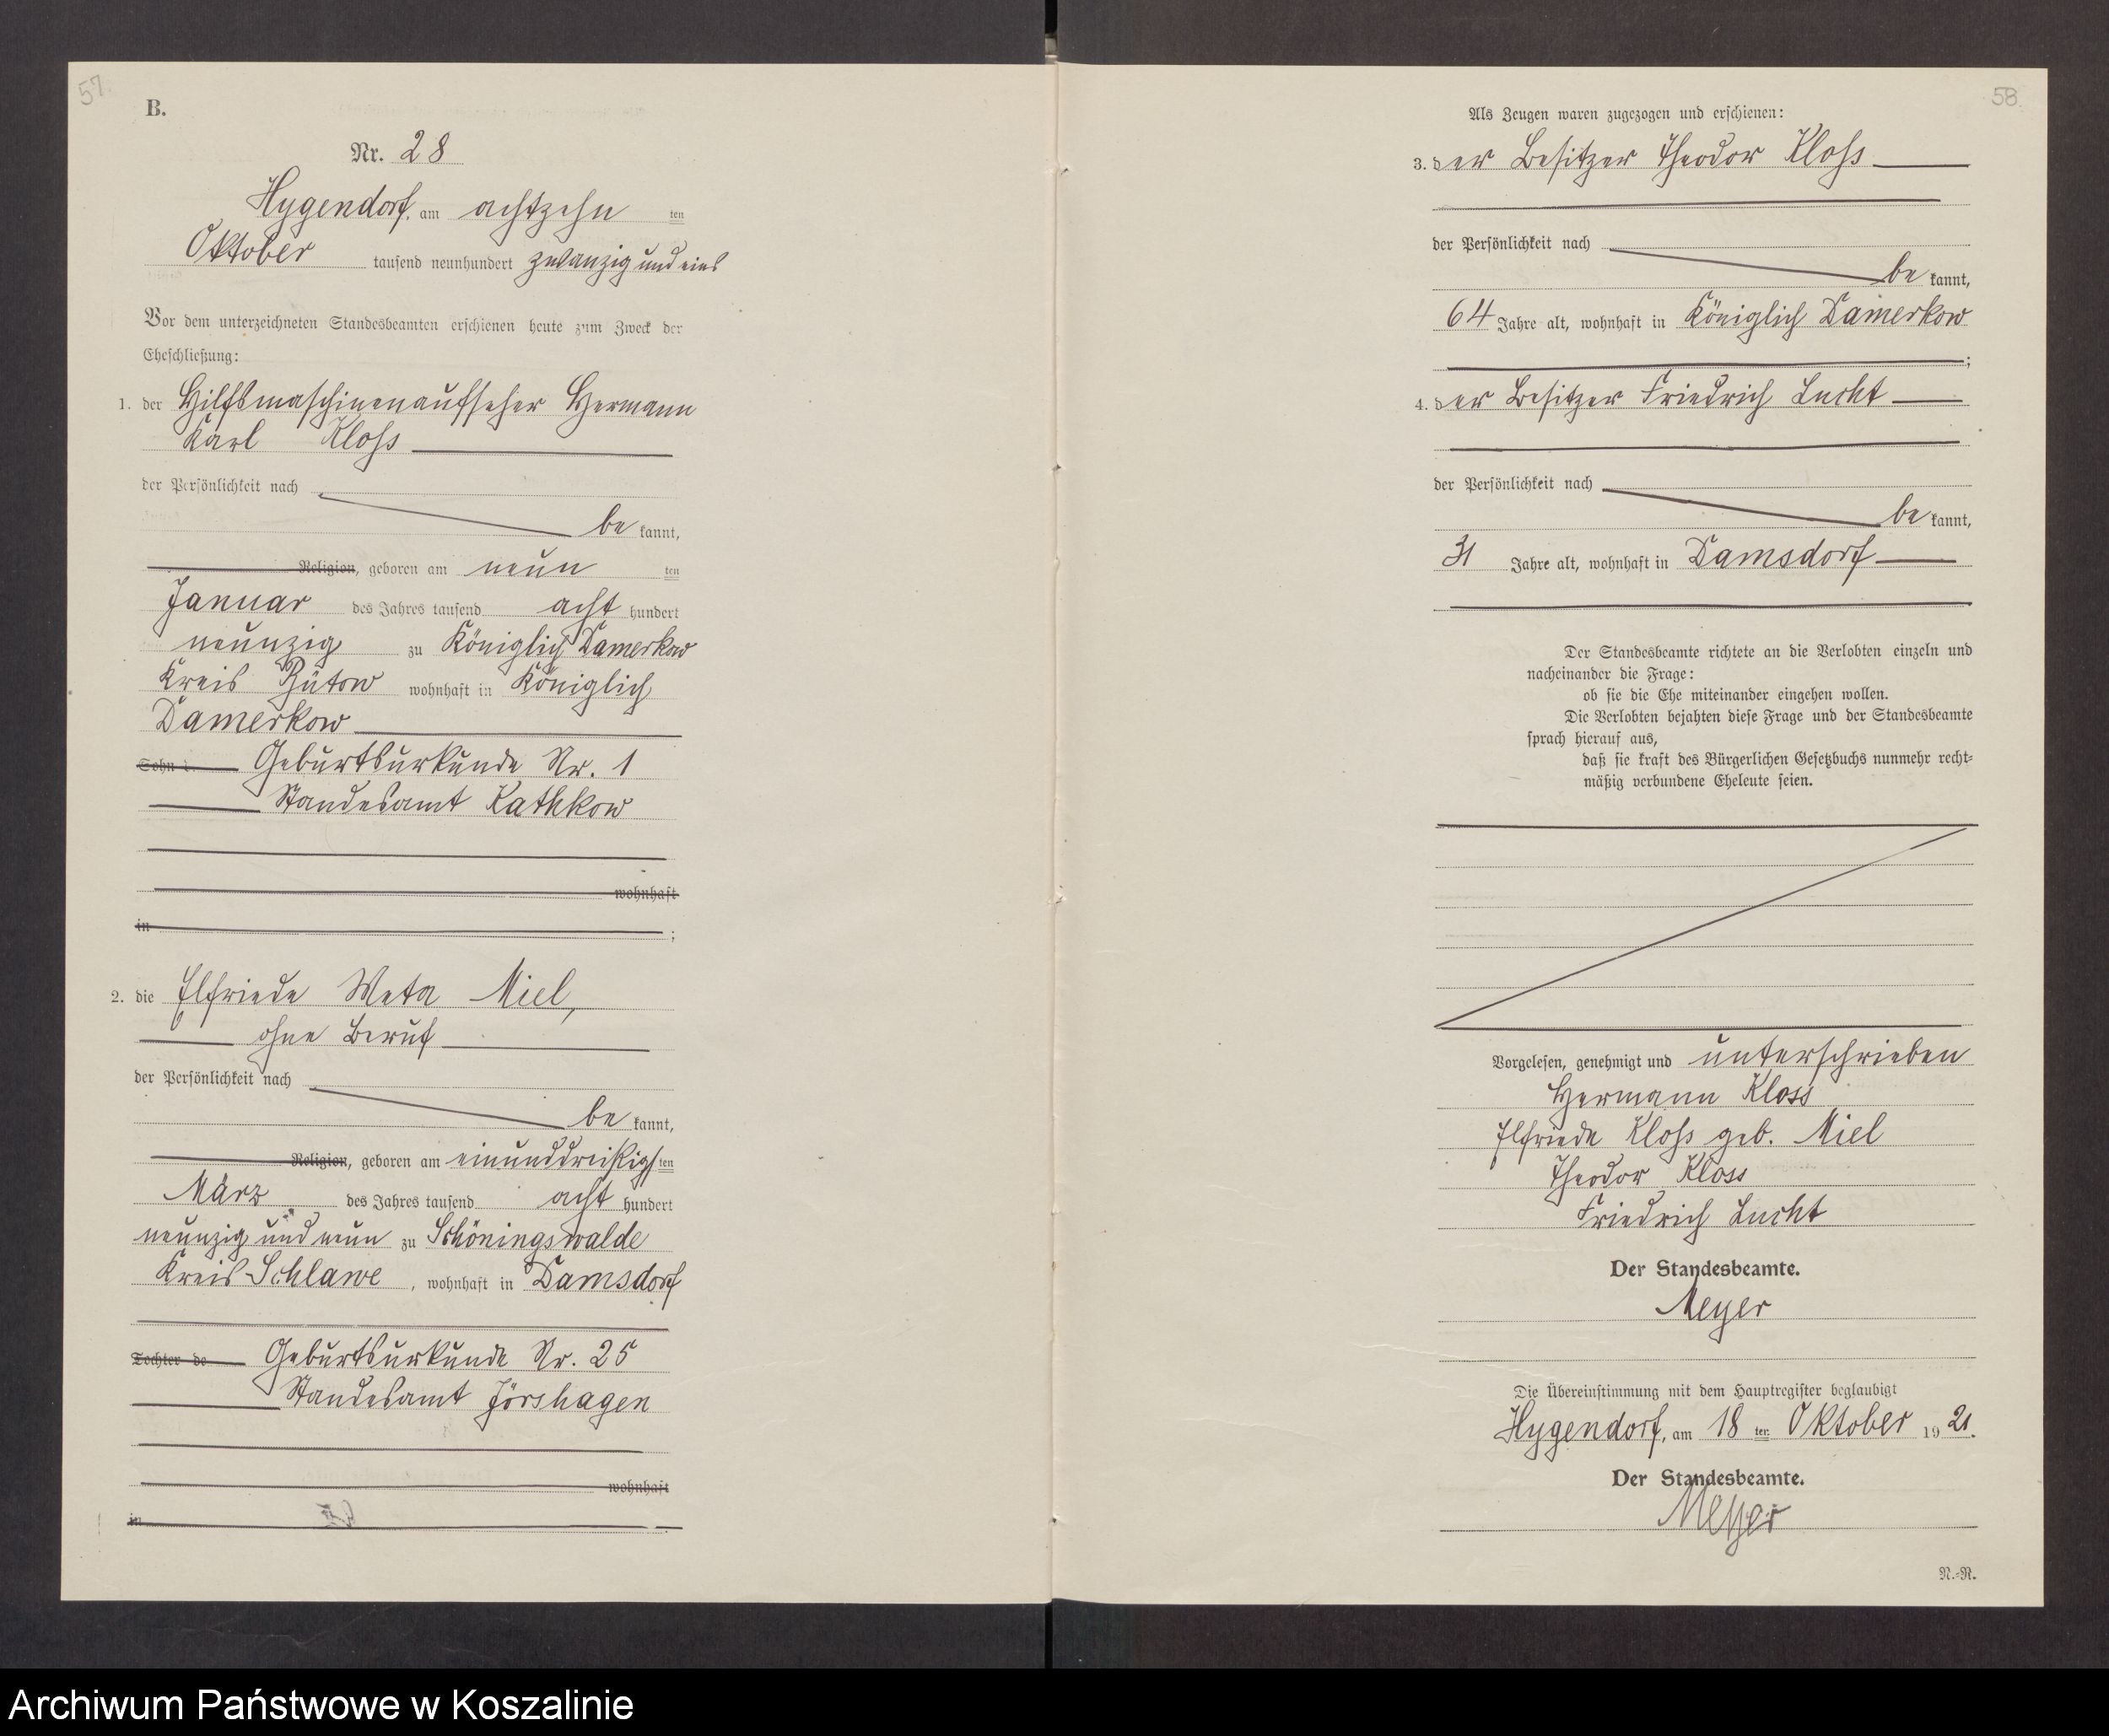 57.
B.
Nr. 28
Hygendorf, am achtzehn ten
Oktober tausend neunhundert zwanzig und eins
Vor dem unterzeichneten Standesbeamten erschienen heute zum Zweck der
Eheschließung:
1. der Hilfsmaschinenaufseher Hermann
Karl Kloss
der Persönlichkeit nach
be kannt,
Religion, geboren am neun ten
Januar des Jahres tausend acht hundert
neunzig zu Königlich Damerkow
Kreis Bütow wohnhaft in Königlich
Damerkow
Sohn d Geburtsurkunde Nr. 1
Standesamt Kathkow
wohnhaft
in ;
2. die Elfriede Meta Miel,
ohne Beruf
der Persönlichkeit nach
be kannt,
Religion, geboren am einunddreißigsten
März des Jahres tausend acht hundert
neunzig und neun zu Schöningswalde
Kreis Schlawe, wohnhaft in Damsdorf
Tochter de Geburtsurkunde Nr. 25
Standesamt Jörshagen
wohnhaft
in
58
Als Zeugen waren zugezogen und erschienen:
3. der Besitzer Theodor Kloss
der Persönlichkeit nach
be kannt,
64 Jahre alt, wohnhaft in Königlich Damerkow
;
4. der Besitzer Friedrich Lucht
der Persönlichkeit nach
be kannt,
31 Jahre alt, wohnhaft in Damsdorf
Der Standesbeamte richtete an die Verlobten einzeln und
nacheinander die Frage:
ob sie die Ehe miteinander eingehen wollen.
Die Verlobten bejahten diese Frage und der Standesbeamte
sprach hierauf aus,
daß sie kraft des Bürgerlichen Gesetzbuchs nunmehr recht-
mäßig verbundene Eheleute seien.
Vorgelesen, genehmigt und unterschrieben
Hermann Kloss
Elfriede Kloss geb. Miel
Theodor Kloss
Friedrich Lucht
Der Standesbeamte.
Meyer
Die Übereinstimmung mit dem Hauptregister beglaubigt
Hygendorf, am 18 ten Oktober 1921.
Der Standesbeamte.
Meyer
N.-R.
Archiwum Państwowe w Koszalinie